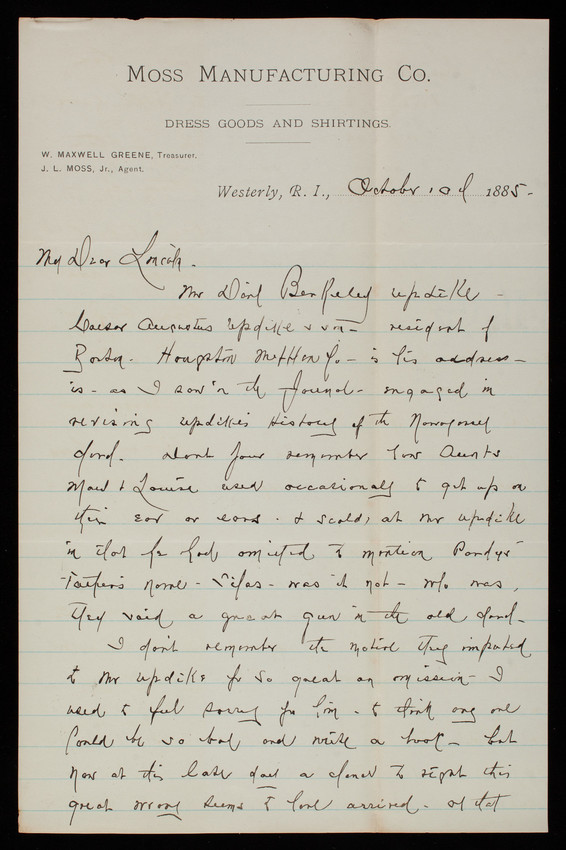 MOSS MANUFACTURING CO.
DRESS GOODS AND SHIRTINGS.
W. MAXWELL GREENE, Treasurer.
J. L. MOSS, Jr., Agent.
Westerly, R. I., October 1885-
My Dear Lincoln.
Mr Dan'l Berkeley Updike -
Caesar Augustus Updike's son - resident of
Boston. Houghton Mifflin Co - is his address -
is - as I saw in the Journal - engaged in
revising Updike's History of the Narragansett
Church. Don't you remember how Aunts
Maud & Louise used occasionally to get up on
their ear or ears - & scold, at Mr Updike
in that he had omitted to mention Pardys
Father's name - Silas - was it not - who was,
they said a great gun in the old church.
I don't remember the motive they imputed
to Mr Updike for so great an omission - I
used to feel sorry for him - to think any one
could be so bad and write a book - but
now at this late day a chance to right this
great wrong seems to have arrived - at that